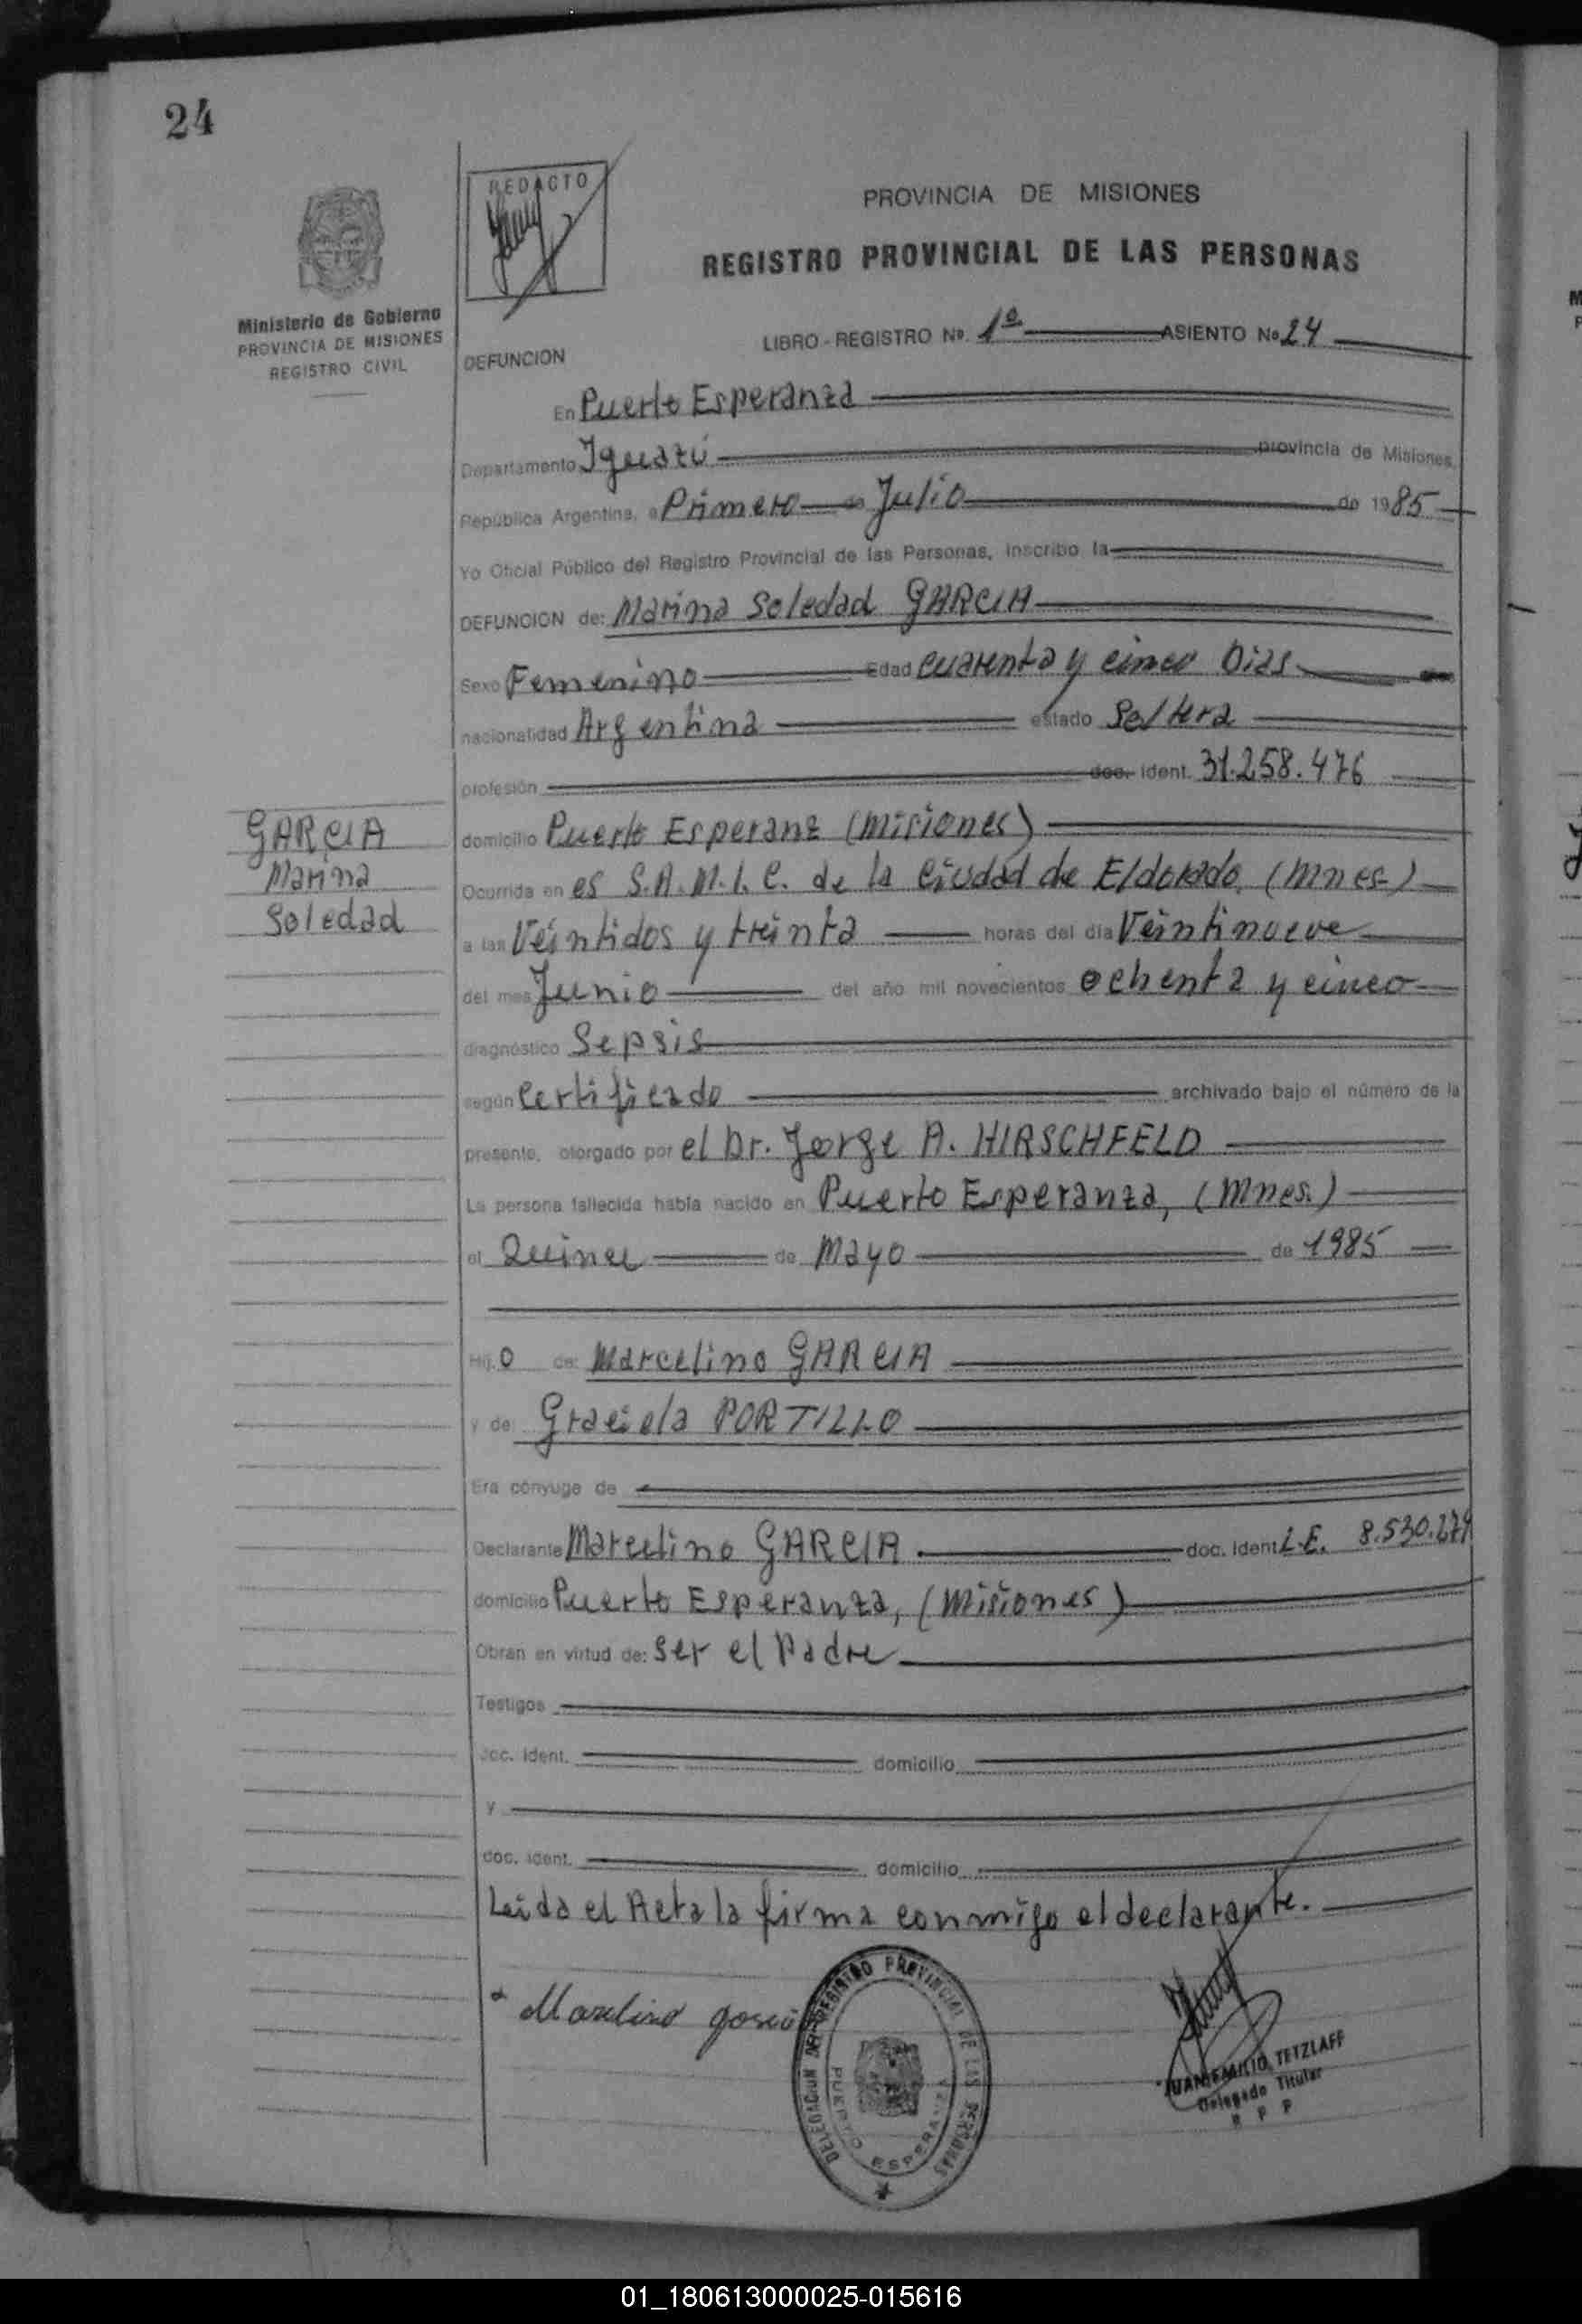 24
REDACTO
PROVINCIA DE MISIONES
REGISTRO PROVINCIAL DE LAS PERSONAS
Ministerio de Gobierno
PROVINCIA DE MISIONES
REGISTRO CIVIL
LIBRO - REGISTRO No. 1º ASIENTO No 24
DEFUNCION
En Puerto Esperanza
Departamento Iguazú provincia de Misiones,
República Argentina, a Primero de Julio de 1985
Yo Oficial Público del Registro Provincial de las Personas, inscribo la
DEFUNCION de: Marina Soledad GARCIA
Sexo Femenino Edad cuarenta y cinco Dias
nacionalidad Argentina estado Soltera
profesión doc. ident. 31.258.476
GARCIA
Marina
Soledad
domicilio Puerto Esperanz (Misiones)
Ocurrida en es S.A.M.I.C. de la Ciudad de Eldorado, (Mnes.)
a las Veintidos y treinta horas del día Veintinueve
del mes Junio del año mil novecientos ochenta y cinco
diagnóstico Sepsis
según Certificado archivado bajo el número de la
presente, otorgado por el Dr. Jorge A. HIRSCHFELD
La persona fallecida había nacido en Puerto Esperanza, (Mnes.)
el Quince de Mayo de 1985
Hij o de: Marcelino GARCIA
y de Graciela PORTILLO
Era cónyuge de
Declarante Marcelino GARCIA doc. ident L.E. 8.530.279
domicilio Puerto Esperanza, (Misiones)
Obran en virtud de: Ser el Padre
Testigos
doc. ident. domicilio
y
doc. ident. domicilio
Leida el Acta la firma conmigo el declarante.
Marcelino Garcia
DELEGACION DEL REGISTRO PROVINCIAL DE LAS PERSONAS
PUERTO ESPERANZA
JUAN EMILIO TETZLAFF
Delegado Titular
R P P
01_180613000025-015616